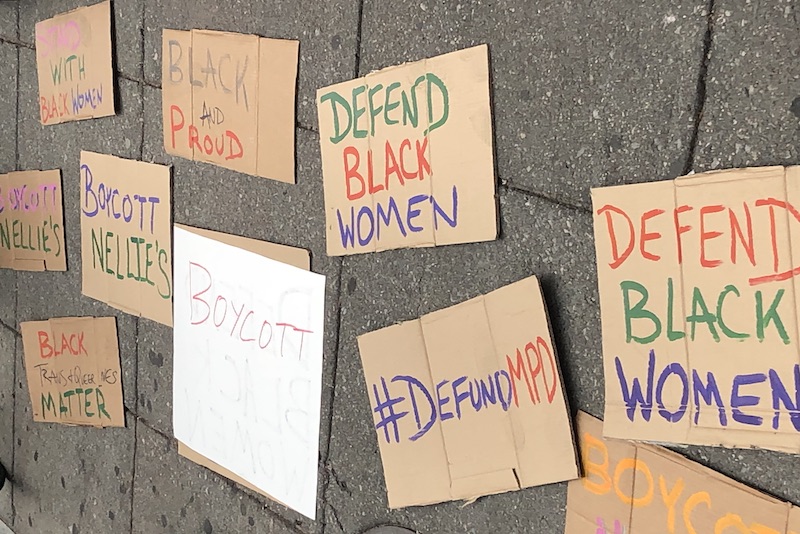 STAND
WITH
BLACK WOMEN
BLACK
AND
PROUD
DEFEND
BLACK
WOMEN
BOYCOTT
NELLIE'S
BOYCOTT
NELLIE'S
BOYCOTT
DEFEND
BLACK
WOMEN
BLACK
TRANS & QUEER LIVES
MATTER
#DEFUNDMPD
DEFEND
BLACK
WOMEN
BOYCOTT